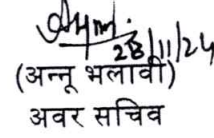 28/11/24
(अन्नू भलावी)
अवर सचिव